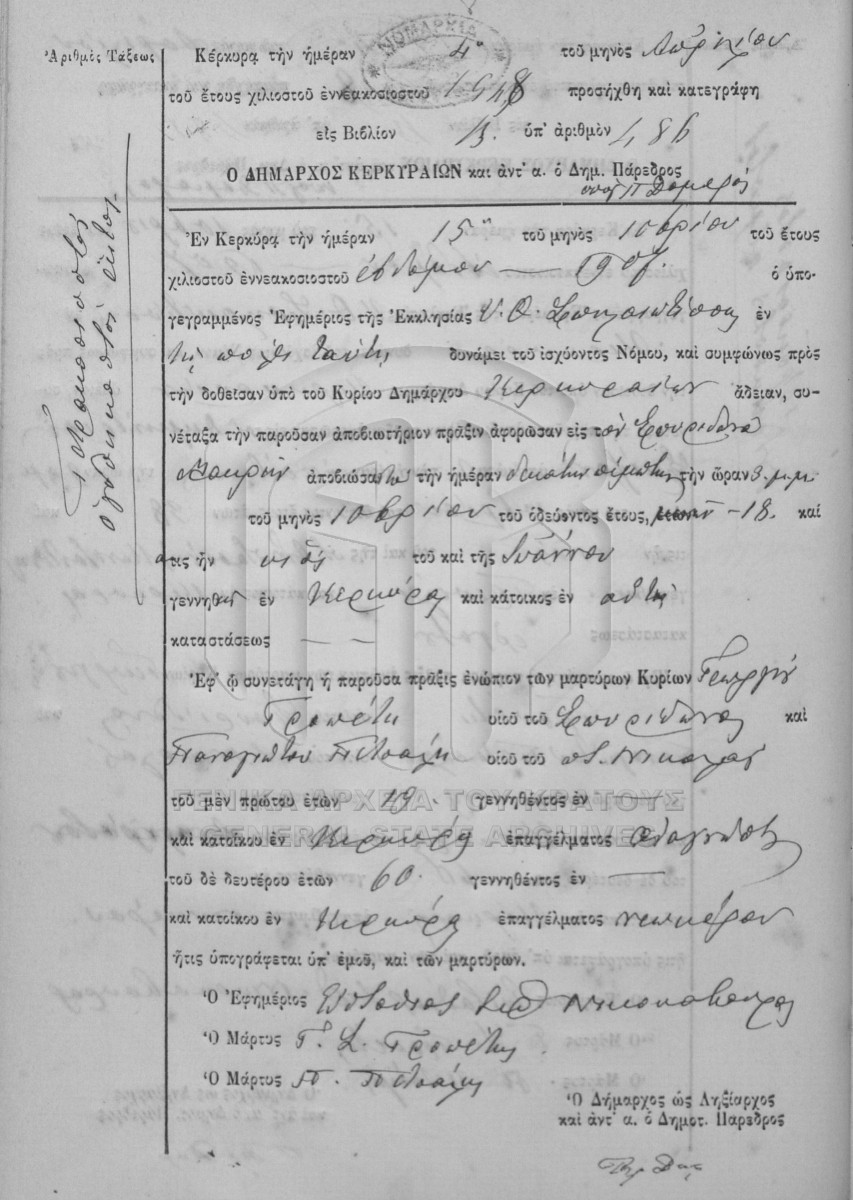 Ἀριθμὸς Τάξεως
Τετρακοσιοστὸς
ὀγδοηκοστὸς ἕκτος
ΝΟΜΑΡΧΙΑ
Κέρκυρα τὴν ἡμέραν 4η τοῦ μηνὸς Ἀπριλίου
τοῦ ἔτους χιλιοστοῦ ἐννεακοσιοστοῦ προσήχθη καὶ κατεγράφη
εἰς Βιβλίον ὑπ' ἀριθμὸν 486
Ο ΔΗΜΑΡΧΟΣ ΚΕΡΚΥΡΑΙΩΝ καὶ ἀντ' α. ὁ Δημ. Πάρεδρος
Ἐν Κερκύρᾳ τὴν ἡμέραν 15η τοῦ μηνὸς 10βρίου τοῦ ἔτους
χιλιοστοῦ ἐννεακοσιοστοῦ ἑβδόμου — 907 ὁ ὑπο-
γεγραμμένος Ἐφημέριος τῆς Ἐκκλησίας Υ. Θ. Σπηλαιωτίσσης ἐν
τῇ πόλει ταύτῃ δυνάμει τοῦ ἰσχύοντος Νόμου, καὶ συμφώνως πρὸς
τὴν δοθεῖσαν ὑπὸ τοῦ Κυρίου Δημάρχου Κερκυραίων ἄδειαν, συ-
νέταξα τὴν παροῦσαν ἀποβιωτήριον πρᾶξιν ἀφορῶσαν εἰς τὸν Σπυρίδωνα
Μακρῆν ἀποβιώσαντα τὴν ἡμέραν δεκάτην πέμπτην τὴν ὥραν 3 μ.μ.
τοῦ μηνὸς 10βρίου τοῦ ὁδεύοντος ἔτους, - 18. καὶ
τις ἦν υἱὸς τοῦ καὶ τῆς Ἰωάννου
γεννηθεὶς ἐν Κερκύρᾳ καὶ κάτοικος ἐν αὐτῇ
καταστάσεως — —
Ἐφ' ᾧ συνετάγη ἡ παροῦσα πρᾶξις ἐνώπιον τῶν μαρτύρων Κυρίων Γεωργίου
Γροπέτη υἱοῦ τοῦ Σπυρίδωνος καὶ
Παναγιώτου Πιτσάλη υἱοῦ τοῦ ποτ. Νικολάου
τοῦ μὲν πρώτου ἐτῶν 19. γεννηθέντος ἐν —
καὶ κατοίκου ἐν Κερκύρᾳ ἐπαγγέλματος ἀναγνώστης
τοῦ δὲ δευτέρου ἐτῶν 60. γεννηθέντος ἐν —
καὶ κατοίκου ἐν Κερκύρᾳ ἐπαγγέλματος νεωκόρου
ἥτις ὑπογράφεται ὑπ' ἐμοῦ, καὶ τῶν μαρτύρων.
Ὁ Ἐφημέριος Εὐστάθιος
Ὁ Μάρτυς Γ. Σ. Γροπέτης
Ὁ Μάρτυς Π. Πιτσάλης
Ὁ Δήμαρχος ὡς Ληξίαρχος
καὶ ἀντ' α. ὁ Δημοτ. Πάρεδρος
ΓΕΝΙΚΑ ΑΡΧΕΙΑ ΤΟΥ ΚΡΑΤΟΥΣ
GENERAL STATE ARCHIVES